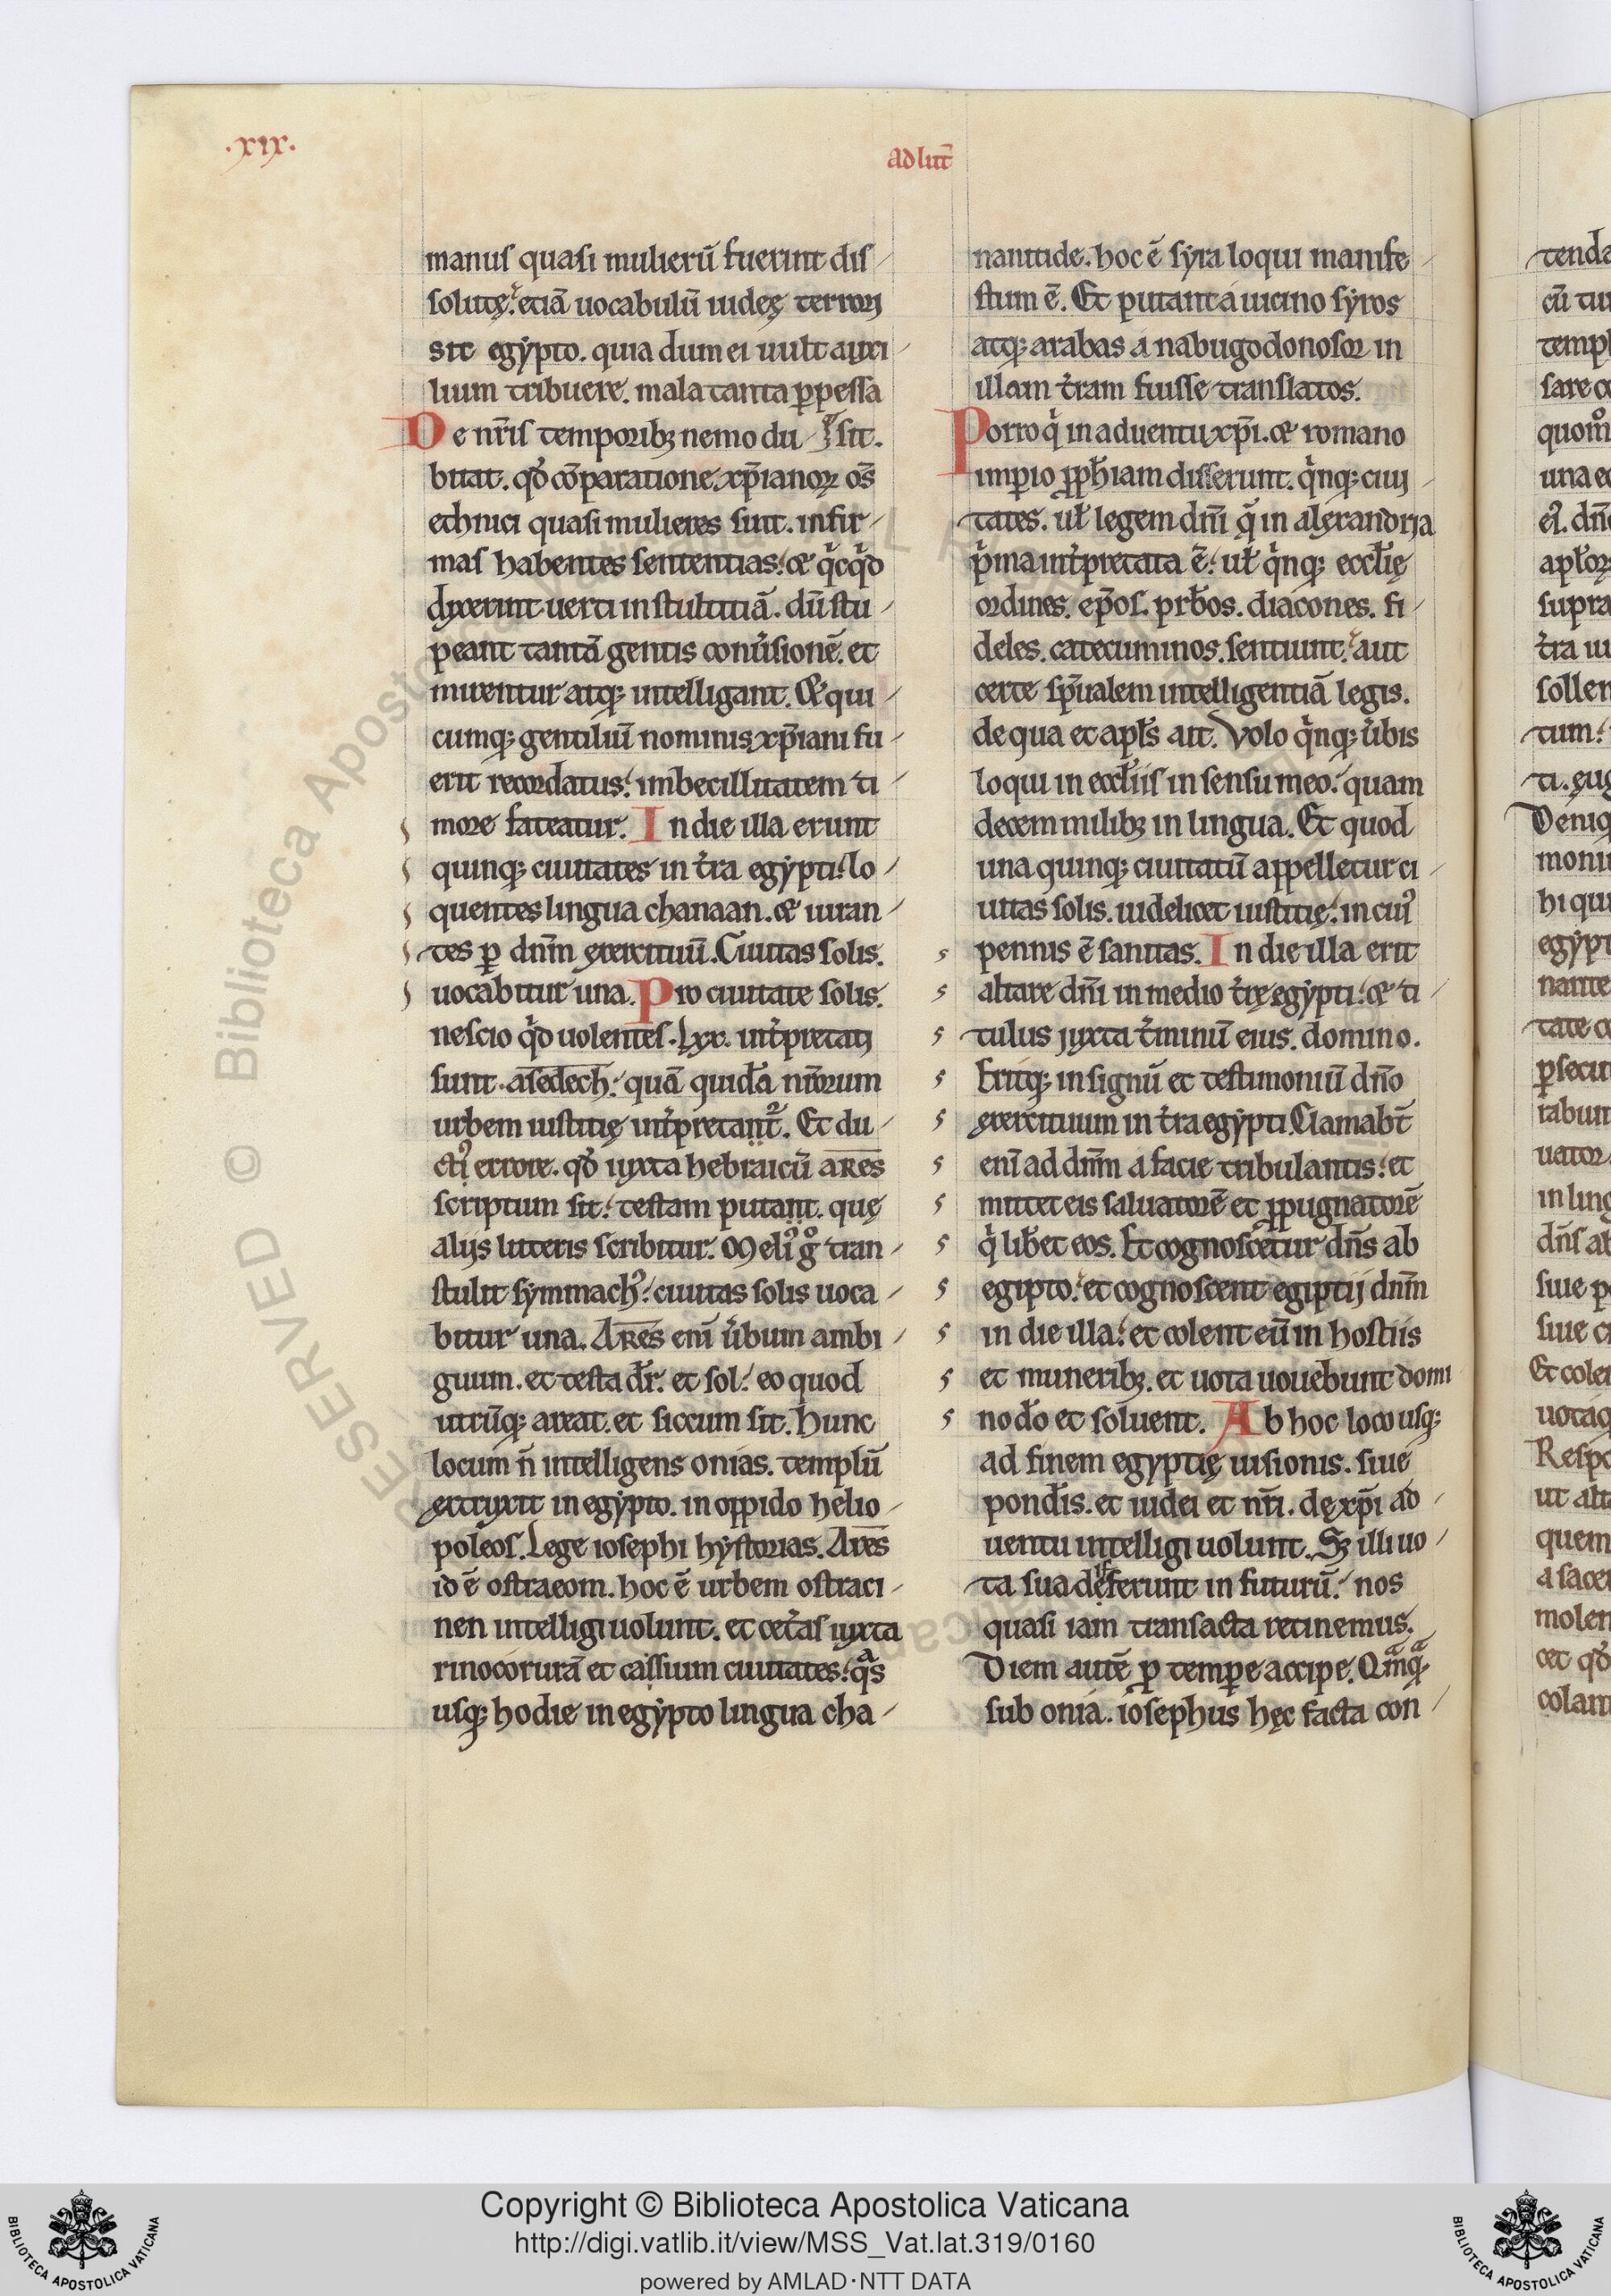 .xix.
ad litt̄
manuſ quaſi mulierū fuerint diſ
ſolutę. etiā uocabulū iudeę terrori
sit egẏpto. quia dum ei uult auxi
lium tribuere. mala tanta ꝑpeſſa
De nr̄iſ temporibꝫ nemo du ſit.
bitat. qd̄ cōparatione xp̄ianoꝝ om̄s
ethnici quaſi mulieres ſunt. infir
maſ habentes ſententias. & qͥcqͥd
dixerint uerti in ſtultitiā. dū ſtu
peant tantā gentis conu̓ſionē. et
mirentur atqꝫ intelligant. & qui
cumqꝫ gentiliū nominis xp̄iani fu
erit recordatus. imbecillitatem ti
more fateatur. In die illa erunt
quinqꝫ ciuitates in t̓ra egẏpti. lo
quentes lingua chanaan. & iuran
tes ꝑ dn̄m exercituū. Ciuitas ſolis.
uocabitur una. Pro ciuitate ſolis.
neſcio qͥd uolentes .lxx. int̓pretati
ſunt. aſedech. quā quidā nr̄orum
urbem iuſtitię int̓pretant᷑. Et du
cti errore. qd̄ iuxta hebraicū aRes
ſcriptum ſit. teſtam putant. quę
alijs litteris ſcribitur. Meliꝰ gͦ tran
ſtulit ſẏmmachꝰ. ciuitas ſolis uoca
bitur una. ARes eni̅ u̓bum ambi
guum. et teſta dr̄. et ſol. eo quod
utrūqꝫ areat. et ſiccum ſit. Hunc
locum n̄ intelligens onias. templū
extruxit in egẏpto. in oppido helio
poleoſ. Lege ioſephi hẏſtorias. Ares
id ē oſtracom. hoc ē urbem oſtraci
nen intelligi uolunt. et cet̓as iuxta
rinocorurā et caſſium ciuitates. qͣs
uſqꝫ hodie in egẏpto lingua cha
nanitide. hoc ē ſẏra loqui manife
ſtum ē. Et putant á uicino ſẏros
atqꝫ arabas á nabugodonoſor in
illam t̓ram fuiſſe tranſlatos.
Porro qͥ in aduentu xp̄i. & romano
imꝑio ꝓph̄iam diſſerunt. qͥnqꝫ ciui
tates. ut̄ legem dn̄i q̄ in alexandria
pͥma int̓pretata ē. ut̄ qͥnqꝫ eccl̄ię
ordines. ep̄oſ. prb̄os. diacones. fi
deles. catecuminos. ſentiunt. aut
certe ſp̄ualem intelligentiā legis.
de qua et apl̄s ait. Volo qͥnqꝫ u̓bis
loqui in eccl̄iis in ſenſu meo. quam
decem milibꝫ in lingua. Et quod
una quinqꝫ ciuitatū appelletur ci
uitas ſolis. uidelicet iuſtitię. in cuiꝰ
pennis ē ſanitas. In die illa erit
altare dn̄i in medio t̓rę egẏpti. & ti
tulus juxta t̓minū eius. domino.
Eritqꝫ in ſignū et teſtimoniū dn̄o
exercituum in t̓ra egẏpti. Clamabt̄
eni̅ ad dn̄m a facie tribulantis. et
mittet eis ſaluatorē et ꝓpugnatorē
qͥ lib̓et eos. Et cognoſcetur dn̄s ab
egipto. et cognoſcent egiptij dn̄m
in die illa. et colent eū in hoſtiis
et muneribꝫ. et uota uouebunt domi
no d̄o et ſoluent. Ab hoc loco uſqꝫ
ad finem egyptię uiſionis. ſiue
pond̓is. et iudei et nr̄i. dę xp̄i ad
uentu intelligi uolunt. Sꝫ illi uo
ta sua deferunt in futurū. nos
quaſi iam tranſacta retinemus.
Diem autē ꝑ temꝑe accipe. Qm̄qꝫ
ſub onia. ioſephus hęc facta con
Copyright © Biblioteca Apostolica Vaticana
http://digi.vatlib.it/view/MSS_Vat.lat.319/0160
powered by AMLAD·NTT DATA
BIBLIOTECA APOSTOLICA VATICANA
BIBLIOTECA APOSTOLICA VATICANA